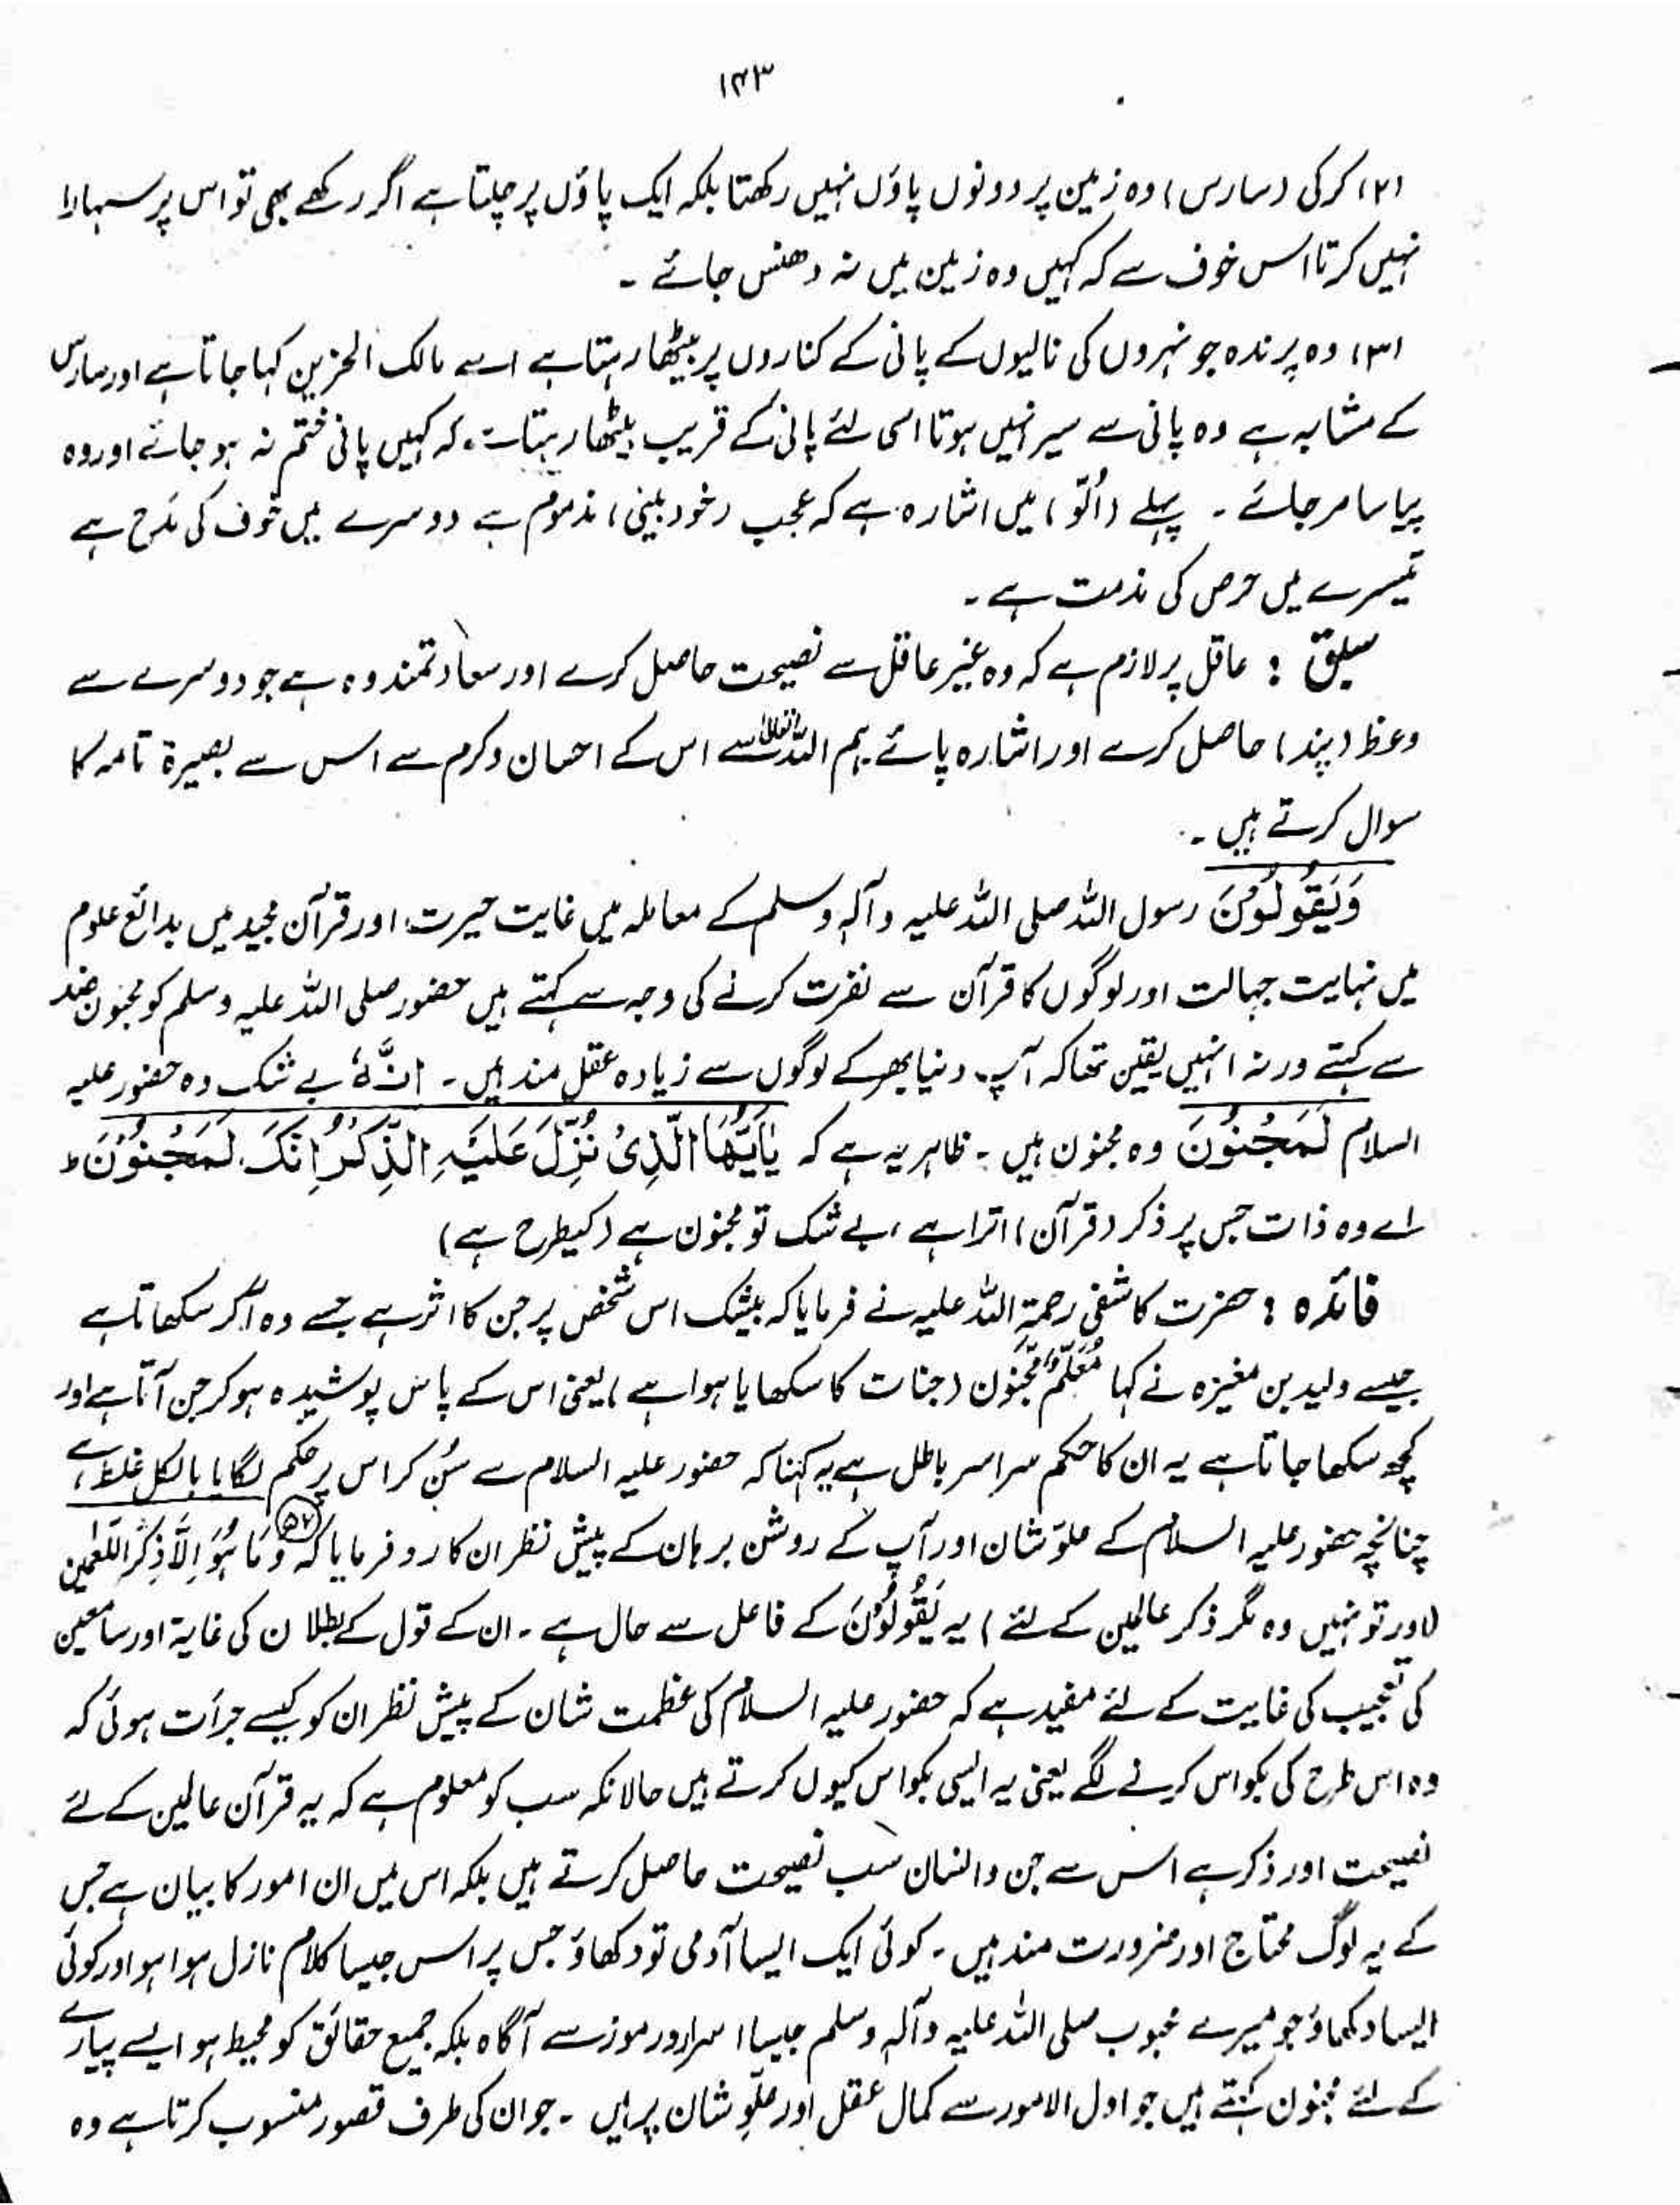 ۱۴۳
(۲) کرکی (سارس) وہ زمین پر دونوں پاؤں نہیں رکھتا بلکہ ایک پاؤں پر چلتا ہے اگر رکھے بھی تو اس پر سہارا
نہیں کرتا اس خوف سے کہ کہیں وہ زمین میں نہ دھنس جائے ۔
(۳) وہ پرندہ جو نہروں کی نالیوں کے پانی کے کناروں پر بیٹھا رہتا ہے اسے مالک الحزین کہا جاتا ہے اور سارس
کے مشابہ ہے وہ پانی سے سیر نہیں ہوتا اسی لئے پانی کے قریب بیٹھا رہتا ہے کہ کہیں پانی ختم نہ ہو جائے اور وہ
پیاسا مر جائے ۔ پہلے (اُلّو) میں اشارہ ہے کہ عجب (خود بینی) مذموم ہے دوسرے میں خوف کی مَدح ہے
تیسرے میں حرص کی مذمت ہے ۔
سبق : عاقل پر لازم ہے کہ وہ غیر عاقل سے نصیحت حاصل کرے اور سعادتمند وہ ہے جو دوسرے سے
وعظ (پند) حاصل کرے اور اشارہ پائے ہم اللہ تعالیٰ سے اس کے احسان و کرم سے اس سے بصیرۃ تامہ کا
سوال کرتے ہیں ۔
وَيَقُولُوْنَ رسول اللہ صلی اللہ علیہ وآلہ وسلم کے معاملہ میں غایت حیرت اور قرآن مجید میں بدائع علوم
میں نہایت جہالت اور لوگوں کا قرآن سے نفرت کرنے کی وجہ سے کہتے ہیں حضور صلی اللہ علیہ وسلم کو مجنون ضد
سے کہتے ورنہ انہیں یقین تھا کہ آپ دنیا بھر کے لوگوں سے زیادہ عقل مند ہیں ۔ اِنَّهٗ بے شک وہ حضور علیہ
السلام لَمَجْنُوْنَ وہ مجنون ہیں ۔ ظاہر یہ ہے کہ يٰاَيُّهَا الَّذِىْ نُزِّلَ عَلَيْهِ الذِّكْرُ اِنَّكَ لَمَجْنُوْنَ ط
اے وہ ذات جس پر ذکر (قرآن) اترا ہے ، بے شک تو مجنون ہے (کیطرح ہے)
فائدہ : حضرت کاشفی رحمۃ اللہ علیہ نے فرمایا کہ بیشک اس شخص پر جن کا اثر ہے جسے وہ آکر سکھاتا ہے
جیسے ولید بن مغیرہ نے کہا مُعَلَّمٌ مَّجْنُون (جنات کا سکھایا ہوا ہے) یعنی اس کے پاس پوشیدہ ہو کر جن آتا ہے اور
کچھ سکھا جاتا ہے یہ ان کا حکم سراسر باطل ہے یہ کہنا کہ حضور علیہ السلام سے سُن کر اس پر حکم لگایا بالکل غلط ہے ،
چنانچہ حضور علیہ السلام کے علوّ شان اور آپ کے روشن برہان کے پیش نظر ان کا رد فرمایا کہ (۵۲) وَمَا هُوَ اِلَّا ذِكْرٌ لِّلْعٰلَمِيْن
(اور تو نہیں وہ مگر ذکر عالمین کے لئے) یہ يَقُوْلُوْنَ کے فاعل سے حال ہے ۔ ان کے قول کے بطلان کی غایۃ اور سامعین
کی تعجیب کی غایت کے لئے مفید ہے کہ حضور علیہ السلام کی عظمت شان کے پیش نظر ان کو کیسے جرأت ہوئی کہ
وہ اس طرح کی بکواس کرنے لگے یعنی یہ ایسی بکواس کیوں کرتے ہیں حالانکہ سب کو معلوم ہے کہ یہ قرآن عالمین کے لئے
نصیحت اور ذکر ہے اس سے جن و انسان سب نصیحت حاصل کرتے ہیں بلکہ اس میں ان امور کا بیان ہے جس
کے یہ لوگ محتاج اور ضرورت مند ہیں ۔ کوئی ایک ایسا آدمی تو دکھاؤ جس پر اس جیسا کلام نازل ہوا ہو اور کوئی
ایسا دکھاؤ جو میرے محبوب صلی اللہ علیہ وآلہ وسلم جیسا اسرار و رموز سے آگاہ بلکہ جمیع حقائق کو محیط ہو ایسے پیارے
کے لئے مجنون کہتے ہیں جو اول الامور سے کمال عقل اور علوِ شان پر ہیں ۔ جو ان کی طرف قصور منسوب کرتا ہے وہ